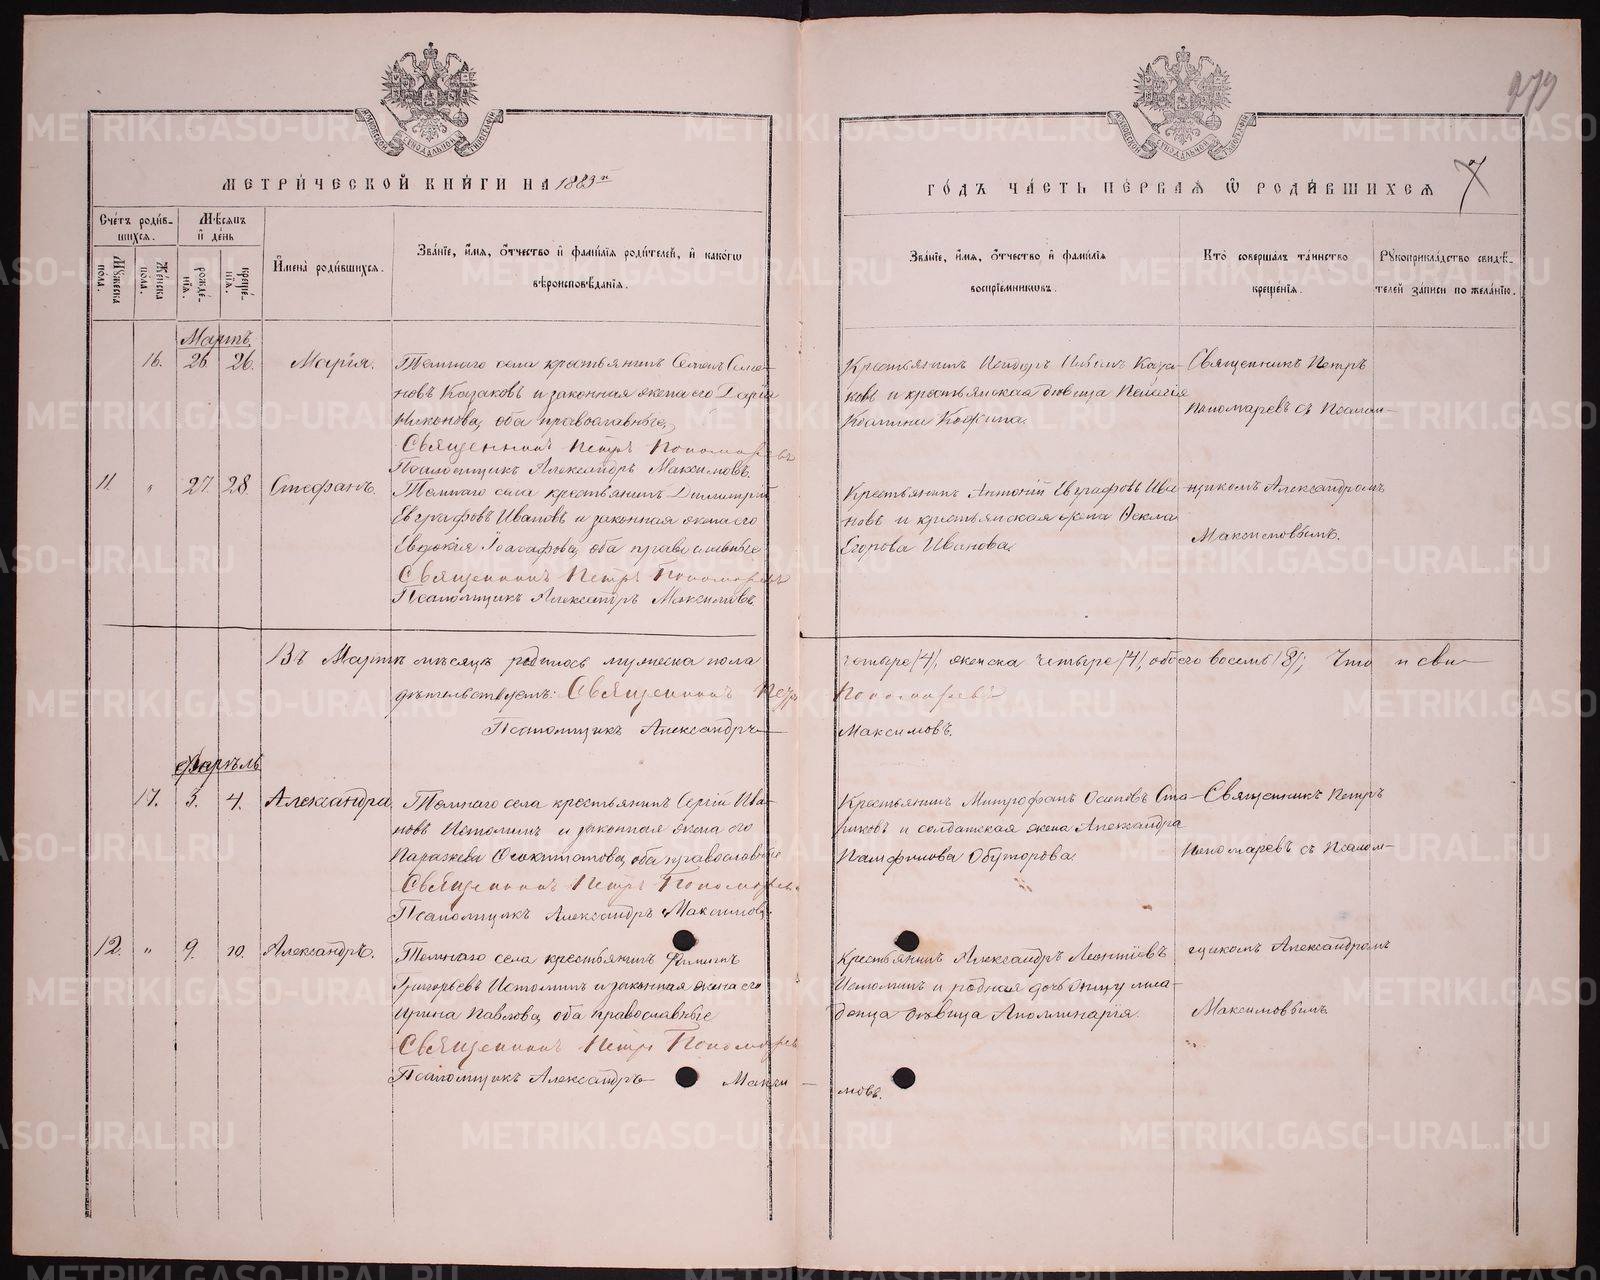 279
МЕТРИЧЕСКОЙ КНИГИ НА 1883й
ГОДЪ ЧАСТЬ ПЕРВАЯ Ѿ РОДИВШИХСЯ
7
Счетъ родившихся.
Мѣсяцъ и день
Имена родившихся.
Званіе, имя, отчество и фамилія родителей, и какогω вѣроисповѣданія.
Званіе, имя, отчество и фамилія воспріемниковъ.
Кто совершалъ таинство крещенія.
Рукоприкладство свидѣтелей записи по желанію.
Мужеска пола.
Женска пола.
рожденія.
крещенія.
Мартъ
16. 26 26. Марія.
крестьянинъ Семенъ
новъ Казаковъ и законная жена его Дарія
оба православные,
Священникъ Петръ Пономаревъ
Псаломщикъ Александръ Максимовъ.
Крестьянинъ
ковъ и крестьянская дѣвица Пелагія
Священникъ Петръ
Пономаревъ съ Псалом-
11. " 27. 28. Стефанъ.
села крестьянинъ Димитрій
Евграфовъ Ивановъ и законная жена его
Евдокія оба православные
Священникъ Петръ Пономаревъ
Псаломщикъ Александръ Максимовъ
Крестьянинъ Антоній Евграфовъ Ива-
новъ и крестьянская жена Ѳекла
Егорова Иванова.
щикомъ Александромъ
Максимовымъ.
Въ Мартѣ мѣсяцѣ родилось мужеска пола
четыре /4/, женска четыре /4/, обоего восемь /8/; Что и сви-
дѣтельствуетъ: Священникъ Петръ
Пономаревъ
Псаломщикъ Александръ
Максимовъ.
Апрѣль
17. 3. 4. Александра
села крестьянинъ Сергій Ива-
новъ Истоминъ и законная жена его
Параскева оба православные
Священникъ Петръ Пономаревъ
Псаломщикъ Александръ Максимовъ.
Крестьянинъ Митрофанъ Осиповъ Ста-
риковъ и солдатская жена Александра
Памфилова Обуторова.
Священникъ Петръ
Пономаревъ съ Псалом-
12. " 9. 10. Александръ.
села крестьянинъ Филиппъ
Григорьевъ Истоминъ и законная жена его
Ирина Павлова, оба православные
Священникъ Петръ Пономаревъ
Псаломщикъ Александръ Макси-
мовъ.
Крестьянинъ Александръ Леонтіевъ
Истоминъ и родная дочь отцу мла-
денца дѣвица Аполлинарія.
щикомъ Александромъ
Максимовымъ
METRIKI.GASO-URAL.RU